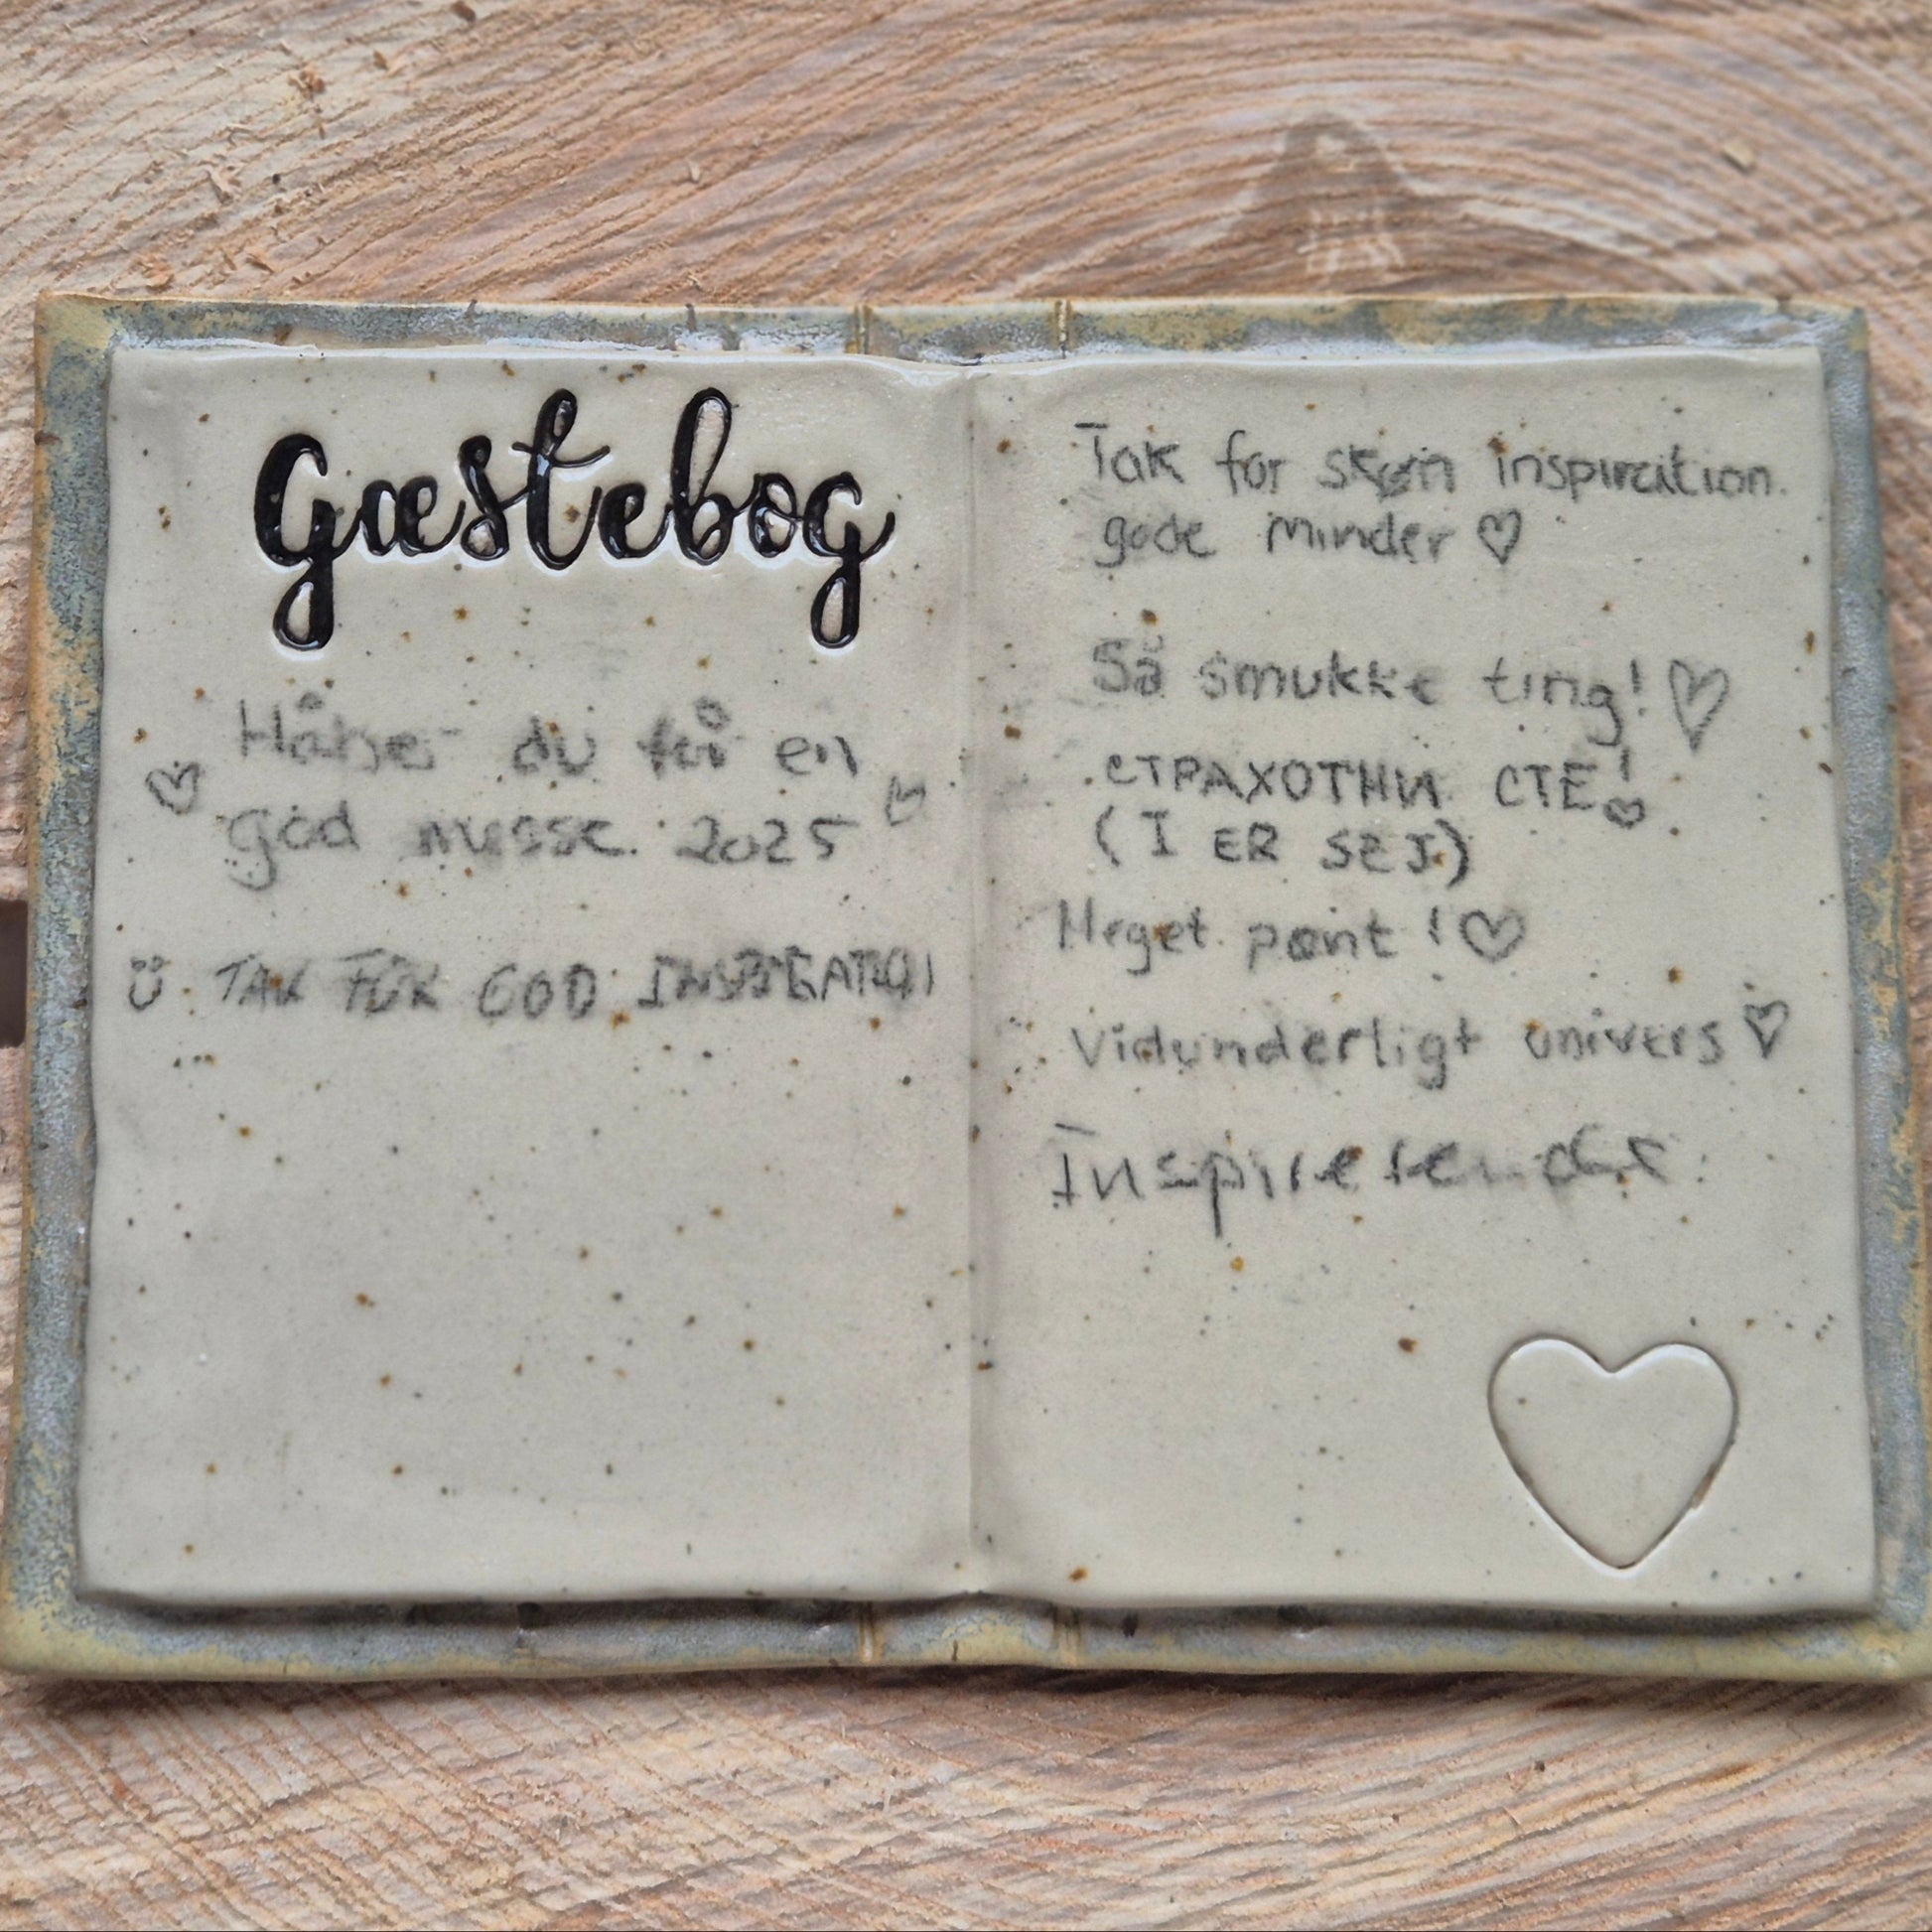 Gæstebog
Håber du får en
god messe. 2025
TAK FOR GOD INSPIRATION
Tak for skøn inspiration.
gode minder ♡
Så smukke ting! ♡
СТРАХОТНИ СТЕ!
(I ER SEJ)
Meget pænt! ♡
Vidunderligt univers ♡
Inspirerende.